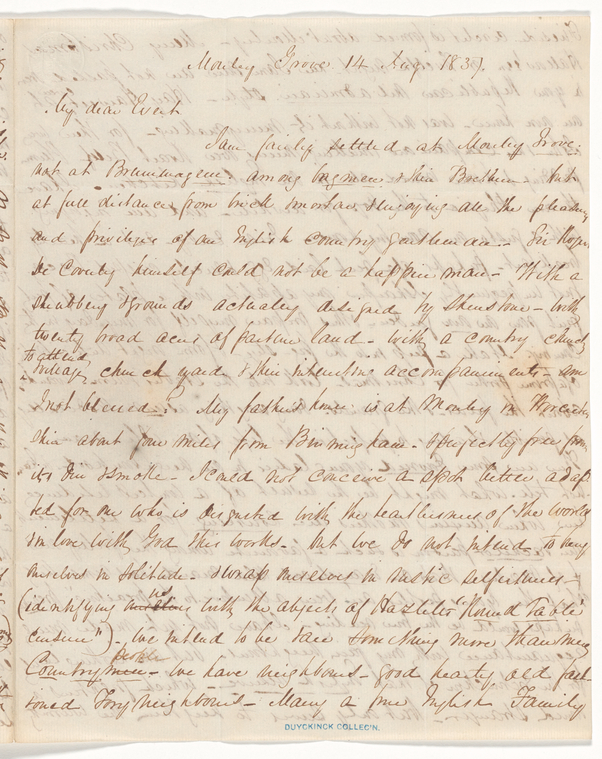 Moseley Grove 14 Aug. 1837.
My dear Evert
I am fairly settled at Moseley Grove.
not at Brummagem; among & their Brethren. but
at full distance from brick & mortar & enjoying all the pleasures
and privileges of an English country gentleman. Sir Roger
de Coverley himself could not be a happier man. With a
shrubbery & grounds actually designed by Shenstone - with
twenty broad acres of pasture land - with a country church
to attend,
village church yard & their interesting accompaniments - am
I not blessed? My father's house is at Moseley in Worcester
shire about four miles from Birmingham - & perfectly free from
its din & smoke. I could not conceive a spot better adap
ted for one who is disgusted with the heartlessness of the world
& in love with God & his works. but we do not intend to bury
ourselves in solitude - & wrap ourselves in rustic selfishness -
(identifying us with the objects of Hazlitt's "Round Table"
censure") - we intend to be something more than mere
people
Country men - We have neighbours - good hearty old fash
ioned Tory neighbours - Many a fine English Family
DUYCKINCK COLLEC'N.